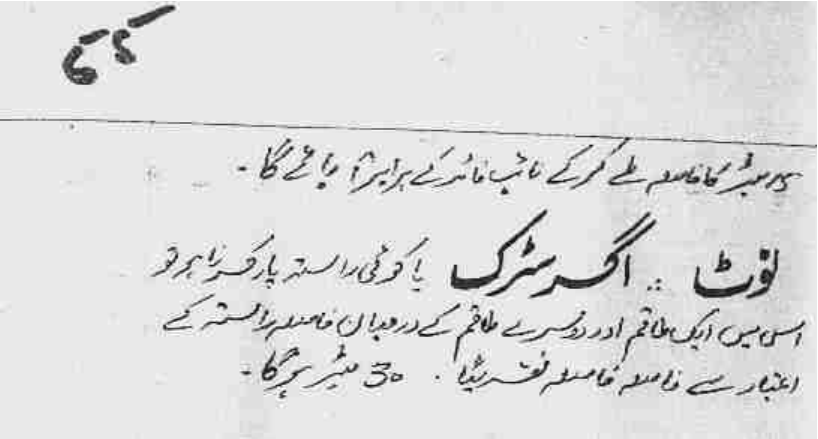 میٹر کا فاصلہ طے کر کے نائب قائد کے برابر آ جائے گا۔
نوٹ :: اگر سڑک یا کوئی راستہ پار کرنا ہو تو
اس میں ایک طاقم اور دوسرے طاقم کے درمیان فاصلہ راستہ کے
اعتبار سے فاصلہ فاصلہ تقریباً 30 میٹر ہوگا۔